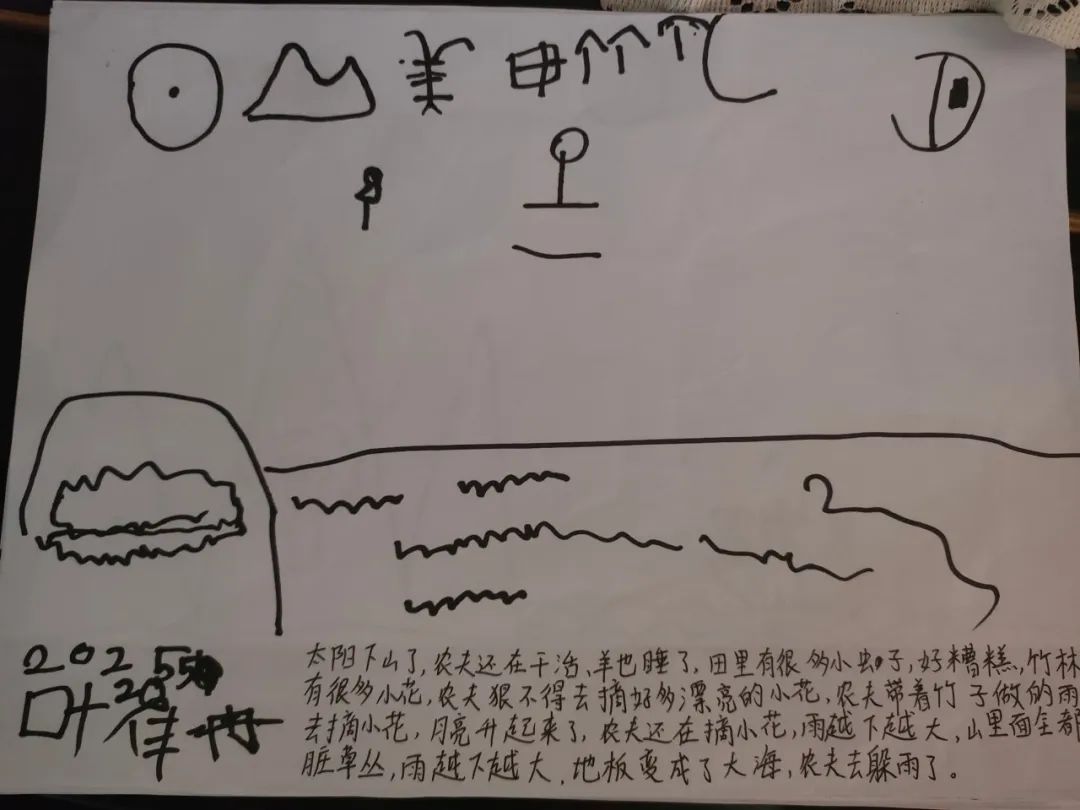 羊 田 个个 个
2025 5
20
叶佳冉
太阳下山了,农夫还在干活、羊也睡了,田里有很多小虫子,好糟糕,竹林
有很多小花,农夫狠不得去摘好多漂亮的小花,农夫带着竹子做的雨
去摘小花,月亮升起来了,农夫还在摘小花,雨越下越大,山里面全都
脏草丛,雨越下越大,地板变成了大海,农夫去躲雨了。